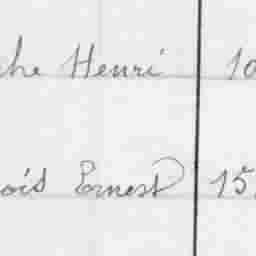 che Henri 10
ois Ernest 15